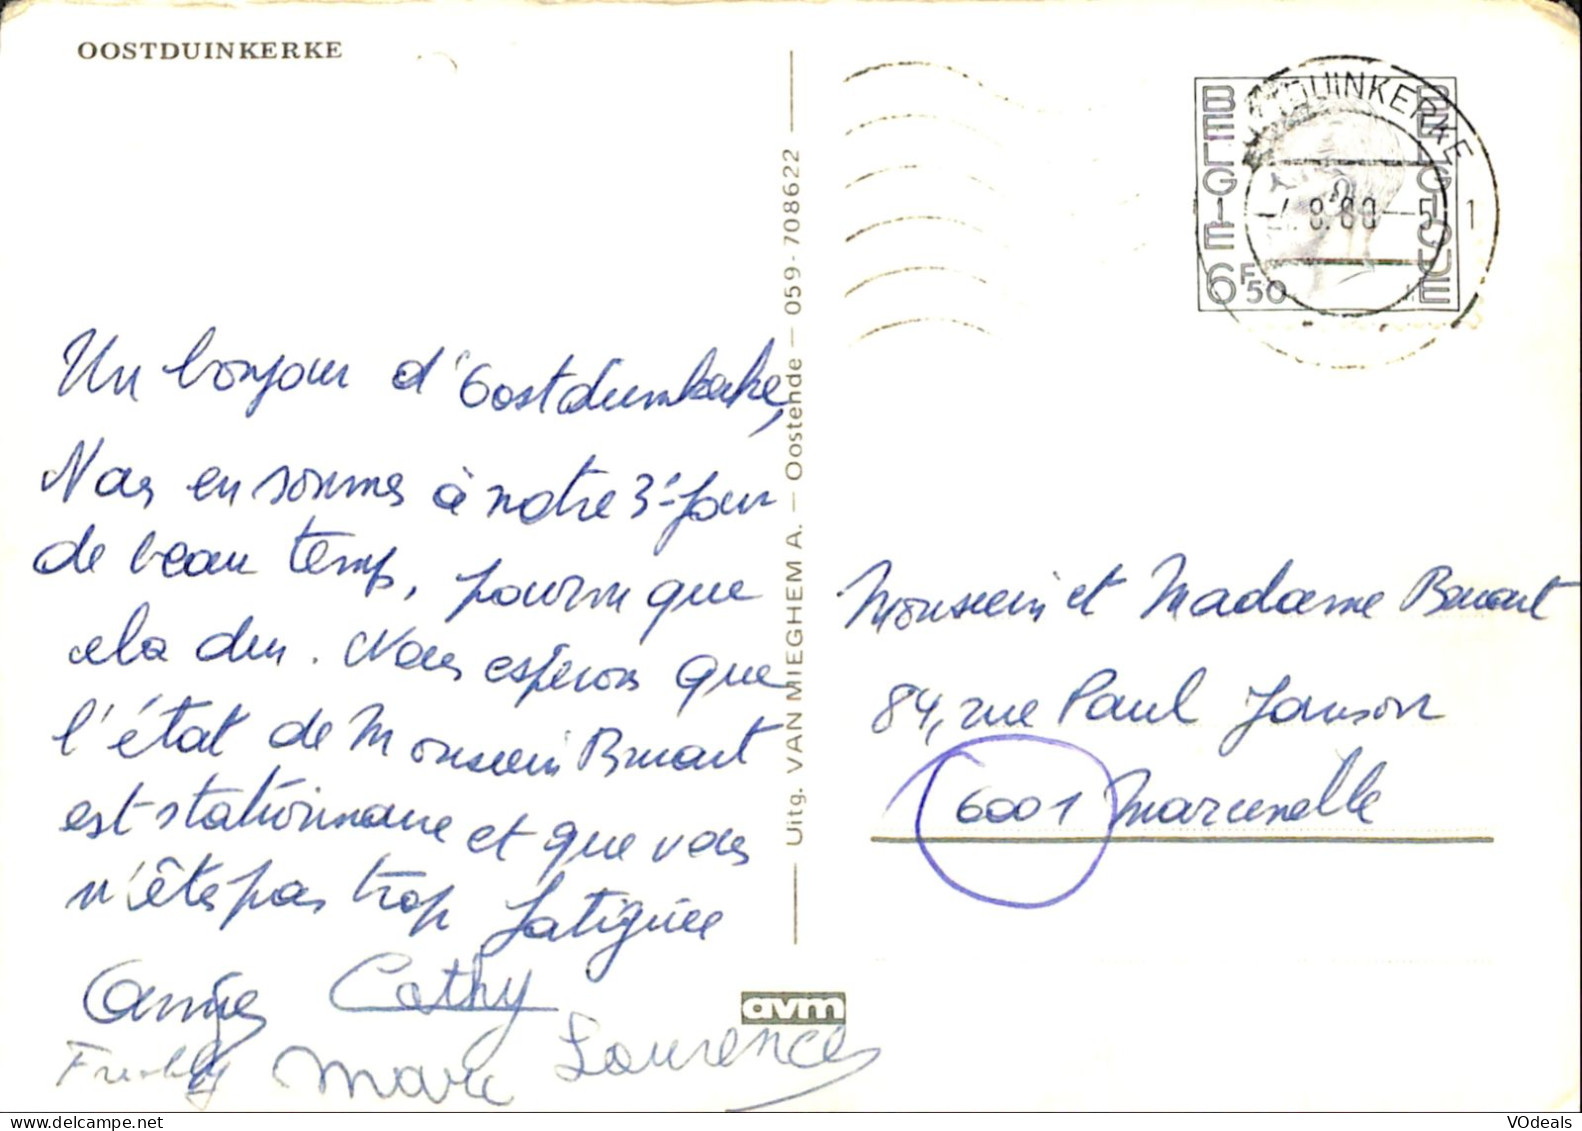 OOSTDUINKERKE
BELGIE
BELGIQUE
6F50
DUINKERKE
8.80
1
Un bonjour d'Oostduinkerke,
Nous en sommes à notre 3e jour
de beau temps, pourvu que
cela dure. Nous espérons que
l'état de Monsieur
est stationnaire et que vous
n'êtes pas trop fatiguée
Cathy
Freddy Marc Laurence
Uitg. VAN MIEGHEM A. — Oostende — 059-708622
avm
Monsieur et Madame
84, rue Paul Janson
6001 Marcinelle
VOdeals